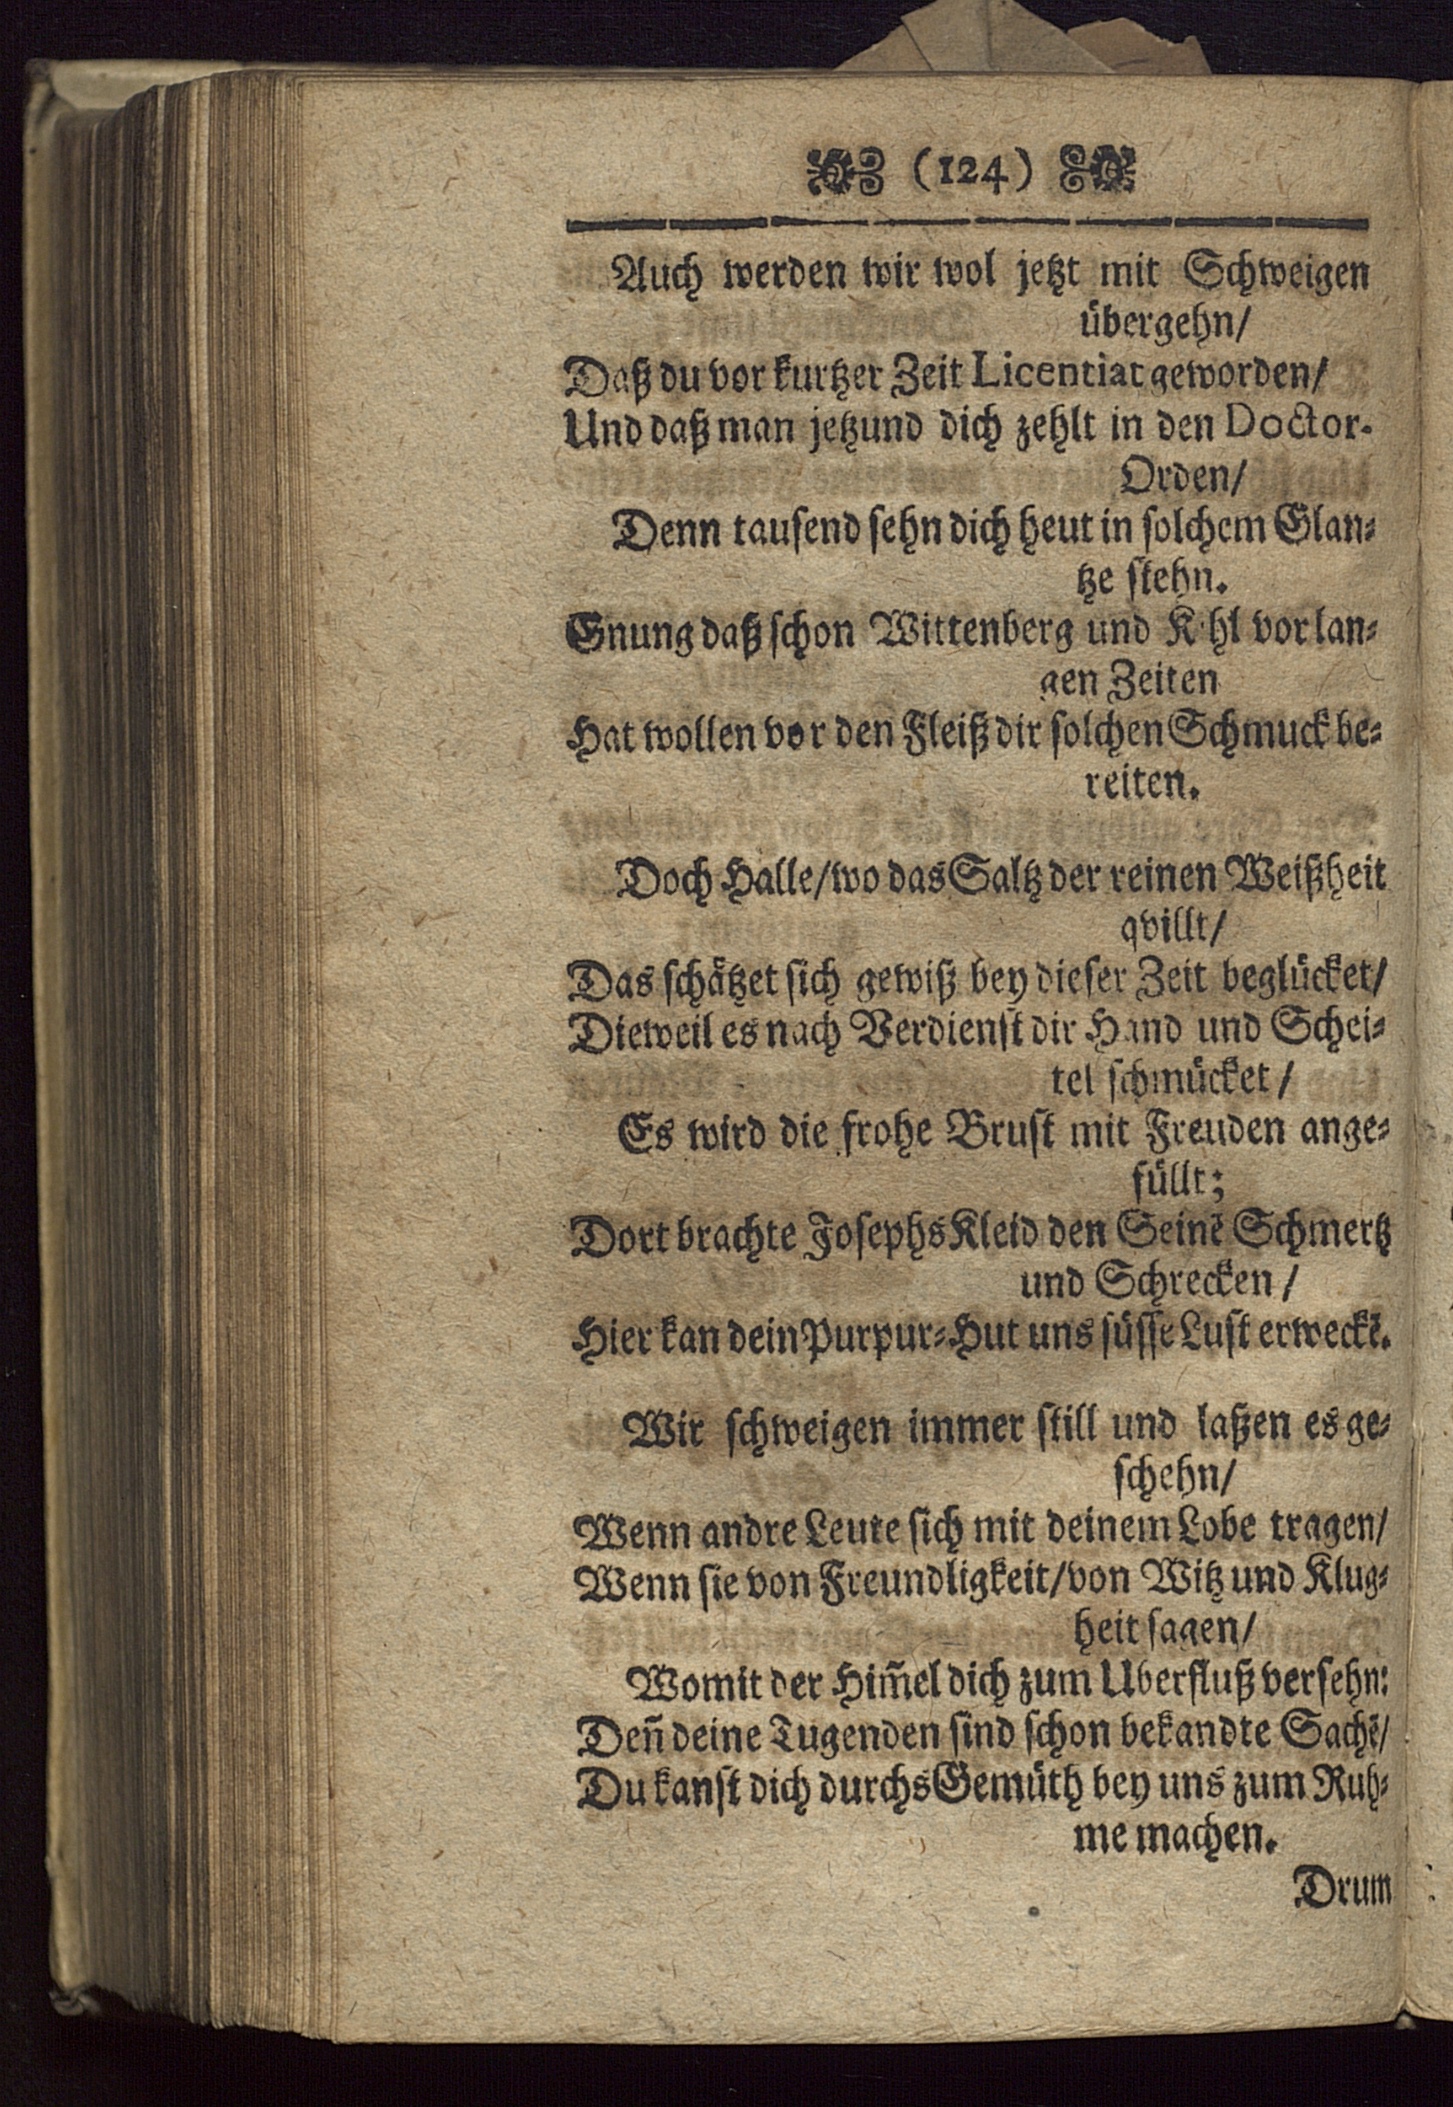 (124)
Auch werden wir wol jetzt mit Schweigen
übergehn/
Daß du vor kurtzer Zeit Licentiat geworden/
Und daß man jetzund dich zehlt in den Doctor-
Orden/
Denn tausend sehn dich heut in solchem Glan-
tze stehn.
Gnung daß schon Wittenberg und K hl vor lan-
gen Zeiten
Hat wollen vor den Fleiß dir solchen Schmuck be-
reiten.
Doch Halle/ wo das Saltz der reinen Weißheit
qvillt/
Das schätzet sich gewiß bey dieser Zeit beglücket/
Dieweil es nach Verdienst dir Hand und Schei-
tel schmücket/
Es wird die frohe Brust mit Freuden ange-
füllt;
Dort brachte Josephs Kleid den Seinē Schmertz
und Schrecken/
Hier kan dein Purpur-Hut uns süsse Lust erweckē.
Wir schweigen immer still und laßen es ge-
schehn/
Wenn andre Leute sich mit deinem Lobe tragen/
Wenn sie von Freundligkeit/ von Witz und Klug-
heit sagen/
Womit der Him̄el dich zum Uberfluß versehn:
Den̄ deine Tugenden sind schon bekandte Sachē/
Du kanst dich durchs Gemüth bey uns zum Ruh-
me machen.
Drum